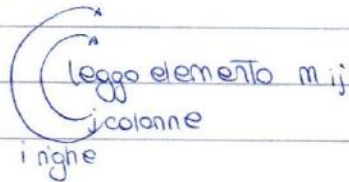 leggo elemento m ij
j colonne
i righe